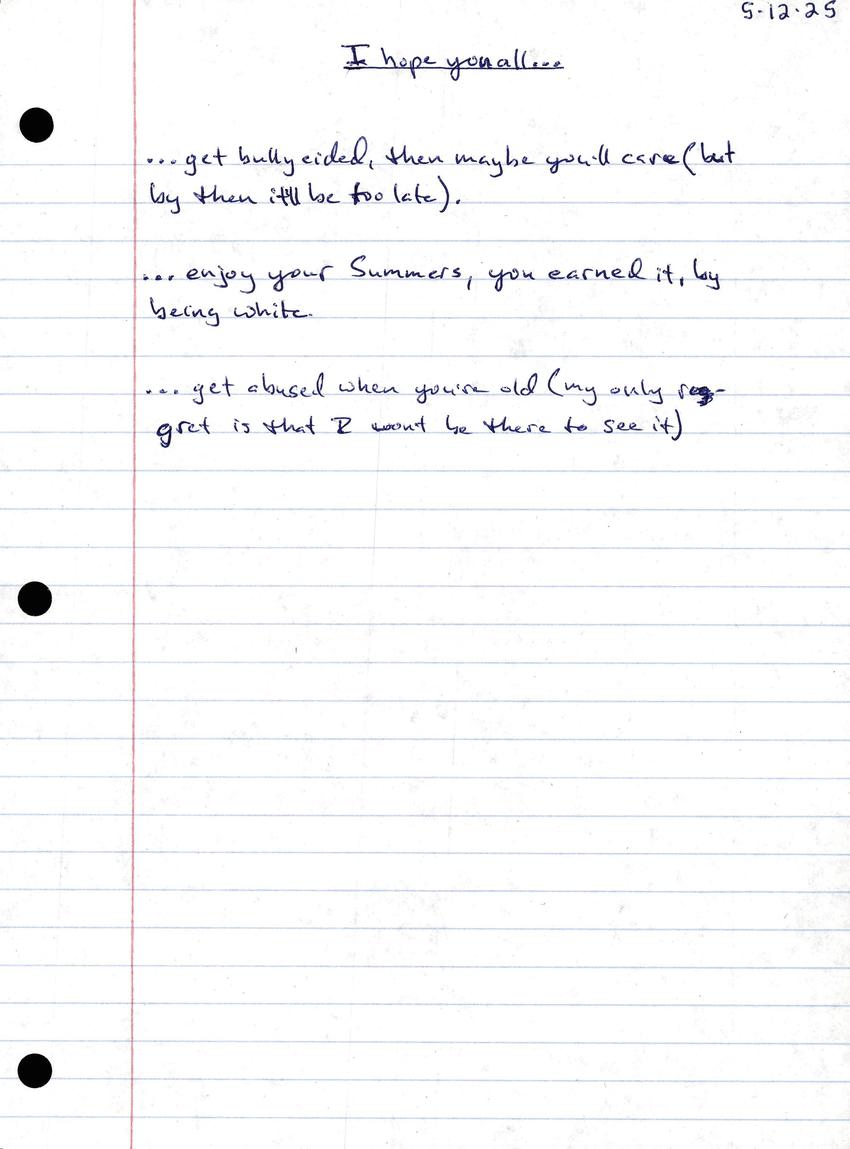 5.12.25
I hope you all...
...get bullycided, then maybe you'll care (but
by then it'll be too late).
...enjoy your Summers, you earned it, by
being white.
...get abused when you're old (my only reg-
gret is that I wont be there to see it)